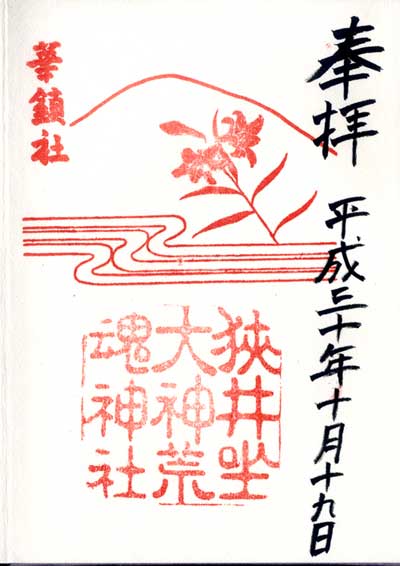 奉拝
平成三十年十月十九日
狭井坐
大神荒
魂神社
華鎮社